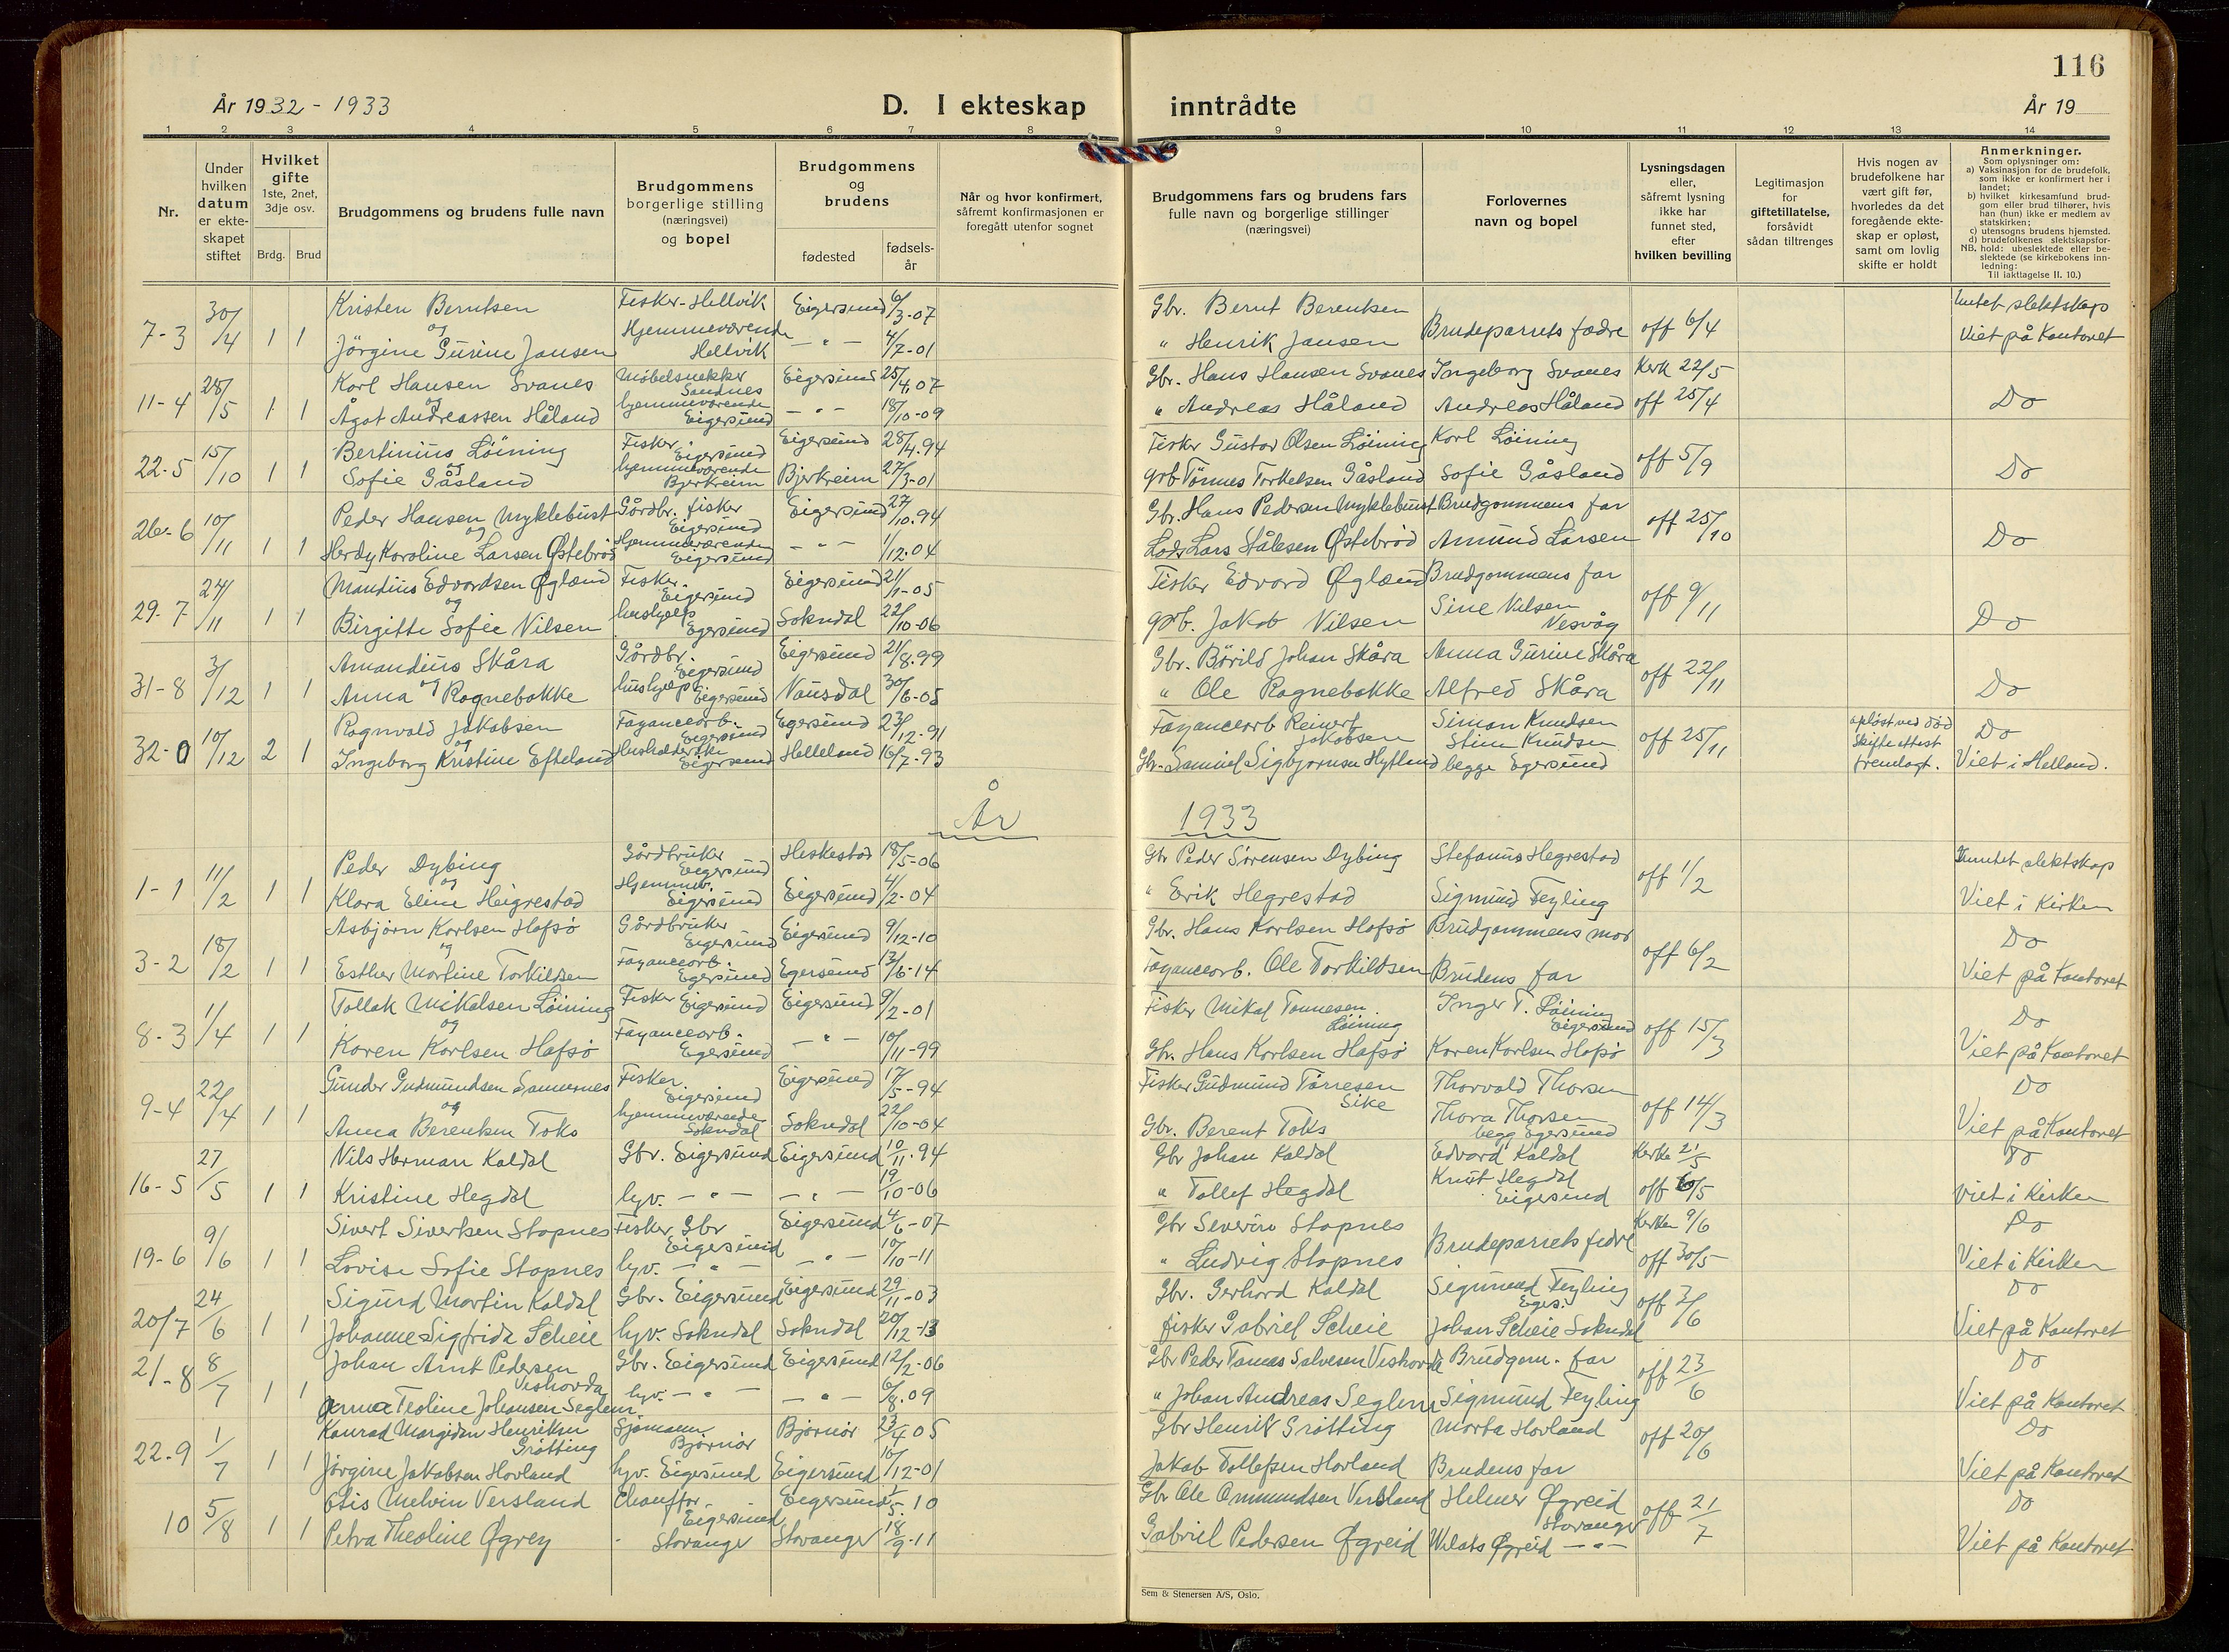 116
År 1932 - 1933
D. I ekteskap inntrådte
År 19
1 2 3 4 5 6 7 8 9 10 11 12 13 14
Nr.
Under hvilken datum er ekte- skapet stiftet
Hvilket gifte
1ste, 2net, 3dje osv.
Brdg. Brud
Brudgommens og brudens fulle navn
Brudgommens borgerlige stilling (næringsvei) og bopel
Brudgommens og brudens
fødested
fødsels- år
Når og hvor konfirmert, såfremt konfirmasjonen er foregått utenfor sognet
Brudgommens fars og brudens fars fulle navn og borgerlige stillinger (næringsvei)
Forlovernes navn og bopel
Lysningsdagen eller, såfremt lysning ikke har funnet sted, efter hvilken bevilling
Legitimasjon for giftetillatelse, forsåvidt sådan tiltrenges
Hvis nogen av brudefolkene har vært gift før, hvorledes da det foregående ekte- skap er opløst, samt om lovlig skifte er holdt
Anmerkninger.
Som oplysninger om:
a) Vaksinasjon for de brudefolk, som ikke er konfirmert her i landet;
b) hvilket kirkesamfund brud- gom eller brud tilhører, hvis han (hun) ikke er medlem av statskirken;
c) utensogns brudens hjemsted.
d) brudefolkenes slektskapsfor- hold: ubeslektede eller be- slektede (se kirkebokens inn- ledning:
NB. Til iakttagelse II. 10.)
7-3 30/4 1 1 Kristen Berntsen Fisker-Hellvik Eigersund 6/3-07 Gbr. Bernt Berentsen Brudeparrets fædre off 6/4 Intet slektskap
og Jörgine Gurine Jansen Hjemmeværende Hellvik - " - 4/7-01 " Henrik Jansen Viet på Kontoret
11-4 28/5 1 1 Karl Hansen Svanes Møbelsnekker Sandnes Eigersund 25/4.07 Gbr. Hans Hansen Svanes Ingeborg Svanes Kirk 22/5
og Ågot Andreassen Håland hjemmeværende Eigersund - " - 18/10-09 " Andreas Håland Andreas Håland off 25/4 Do
22-5 15/10 1 1 Bertinius Löining Fisker Eigersund Eigersund 28/4.94 Fisker Gustav Olsen Löining Karl Löining off 5/9
og Sofie Gåsland hjemmeværende Bjerkreim Bjerkreim 27/3-01 grb Tönnes Torkelsen Gåsland Sofie Gåsland Do
26-6 10/11 1 1 Peder Hansen Myklebust Gårdbr. fisker Eigersund Eigersund 27/10.94 Gbr. Hans Pedersen Myklebust Brudgommens far off 25/10
og Herdy Karoline Larsen Østebröd Hjemmeværende Eigersund - " - 1/12.04 Lods Lars Stålesen Østebröd Amund Larsen Do
29-7 24/11 1 1 Mandius Edvardsen Øglænd Fisker. Eigersund Eigersund 21/1-05 Fisker Edvard Øglænd Brudgommens far off 9/11
og Birgitte Sofie Nilsen hushjelp Egersund Sokndal 22/10-06 grb. Jakob Nilsen Sine Nilsen Vesvåg Do
31-8 3/12 1 1 Amandius Skåra Gårdbr. Eigersund Eigersund 21/8.99 Gbr. Bårild Johan Skåra Anna Gurine Skåra off 22/11
og Anna Rognebakke hushjelp Eigersund Nausdal 30/6-05 " Ole Rognebakke Alfred Skåra Do
32-0 10/12 2 1 Ragnvald Jakobsen Fayancearb. Eigersund Egersund 23/12-91 Fayancearb Reinert Jakobsen Simon Knudsen off 25/11 opløst ved død Do
og Ingeborg Kristine Efteland Husholderske Eigersund Helleland 16/7-93 Gbr. Samuel Sigbjørnsen Hytland Stine Knudsen begge Egersund Skifteattest fremlagt. Viet i Helland.
År 1933
1-1 11/2 1 1 Peder Dybing Gårdbruker Eigersund Heskestad 18/5-06 Gbr Peder Sørensen Dybing Stefanus Hegrestad off 1/2 Intet slektskap
og Klara Eline Heigrestad Hjemmev. Eigersund Eigersund 4/2-04 " Erik Hegrestad Sigmund Feyling Viet i Kirken
3-2 18/2 1 1 Asbjørn Karlsen Hafsø Gårdbruker Eigersund Eigersund 9/12-10 Gbr. Hans Karlsen Hafsø Brudgommens mor off 6/2 Do
og Esther Martine Torkildsen Fayancearb. Egersund Egersund 13/6-14 Fayancearb. Ole Torkildsen Brudens far Viet på Kontoret
8-3 1/4 1 1 Tollak Mikalsen Löining Fisker Eigersund Eigersund 9/2-01 Fisker Mikal Tønnesen Löining Inger T. Löining Eigersund off 15/3 Do
og Karen Karlsen Hafsö Fayancearb. Egersund - " - 10/11-99 Gbr. Hans Karlsen Hafsö Karen Karlsen Hafsö Viet på Kontoret
9-4 22/4 1 1 Gunder Gudmundsen Eigersund Fisker Eigersund 17/5-94 Fisker Gudmund Tørresen Thorvald Thorsen off 14/3 Do
og Anna Berentsen Toks hjemmeværende Sokndal Sokndal 22/10-04 Gbr. Berent Toks Thora Thorsen begg Egersund Viet på Kontoret
16-5 27/5 1 1 Nils Herman Kaldal Gbr. Eigersund Eigersund 10/11.94 Gbr Johan Kaldal Edvard Kaldal Kirke 21/5 Do
Kristine Hegdal hjv. - " - - " - 19/10-06 " Tollef Hegdal Krist Hegdal Eigersund off 6/5 Viet i Kirken
19-6 9/6 1 1 Sivert Sivertsen Stapnes Fisker Gbr Eigersund Eigersund 4/6-07 Gbr Severin Stapnes Brudeparrets fedre Kirken 9/6 Do
Lovise Sofie Stapnes hjv. - " - - " - 10/10-11 " Ludvig Stapnes off 30/5 Viet i Kirken
20/7 24/6 1 1 Sigurd Martin Kaldal Gbr. Eigersund Eigersund 29/11-03 Gbr. Gerhard Kaldal Sigmund Feyling Egers. off 3/6 Do
Johanne Sigfrida Scheie hjv. Sokndal Sokndal 20/12-13 fisker Gabriel Scheie Johan Scheie Sokndal Viet på Kontoret
21-8 8/7 1 1 Johan Arnt Pedersen Veshovda Gbr. Eigersund Eigersund 12/2-06 Gbr Peder Tomas Salvesen Veshovda Brudgom. far off 23/6 Do
Anna Teoline Johansen Seglem hjv. - " - - " - 6/8.09 " Johan Andreas Seglem Sigmund Feyling Viet på Kontoret
22-9 1/7 1 1 Konrad Margidon Henriksen Gråtting Sjømann Bjørnör Bjørnör 23/4 05 Gbr Henrik Gråtting Marta Hovland off 20/6 Do
Jørgine Jakobsen Hovland hjv. Eigersund Eigersund 10/12-01 Jakob Tollefsen Hovland Brudens far Viet på Kontoret
10 5/8 1 1 Otis Melvin Versland Chauffør. Eigersund Eigersund 1/5.10 Gbr Ole Ommundsen Versland Helmer Øgreid Stavanger off 21/7 Do
Petra Theoline Øgrey Stavanger Stavanger 18/9-11 Gabriel Pedersen Øgreid Øgreid - " - Viet på Kontoret
Sem & Stenersen A/S, Oslo.